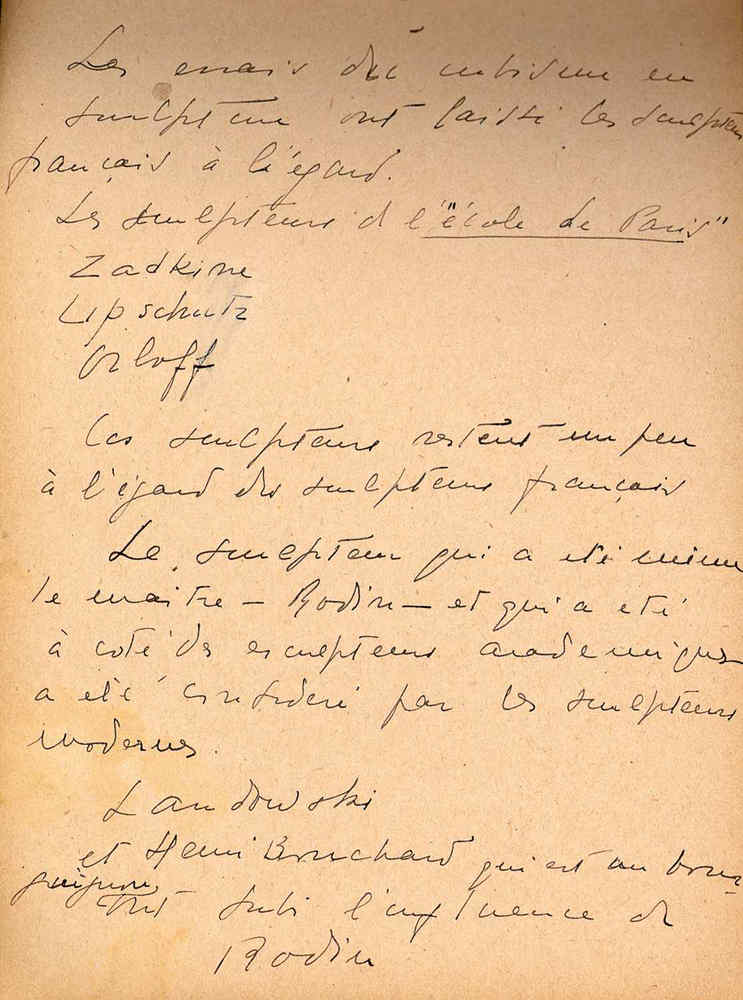 Les essais du cubisme en
sculpture ont laissé les sculpteurs
français à l'égard.
Les sculpteurs d l'"école de Paris"
Zadkine
Lipschutz
Orloff
Ces sculpteurs restent un peu
à l'égard des sculpteurs français
Le sculpteur qui a été même
le maître – Rodin – et qui a été
à coté des esculpteurs academiques
a été consideré par les sculpteurs
modernes.
Landowski
et Henri Bouchard qui est un bour-
guignon
ont subi l'influence de
Rodin